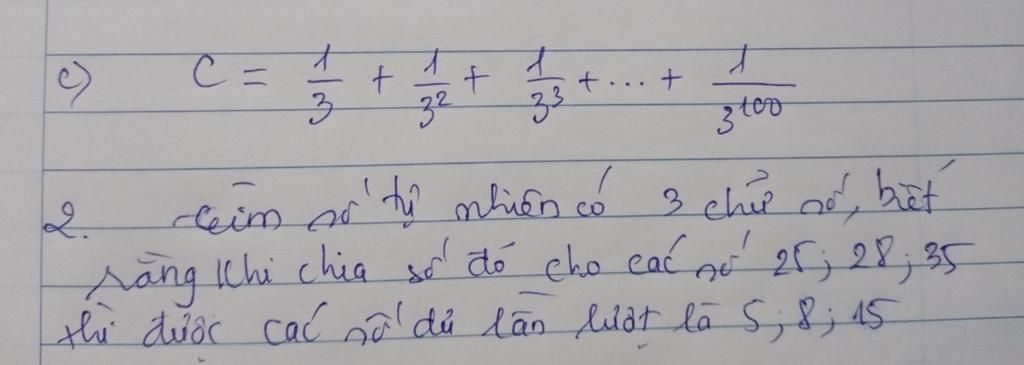 c) C = 1/3 + 1/3² + 1/3³ + ... + 1/3¹⁰⁰
2. Tìm số tự nhiên có 3 chữ số, biết
rằng khi chia số đó cho các số 25; 28; 35
thì được các số dư lần lượt là 5; 8; 15